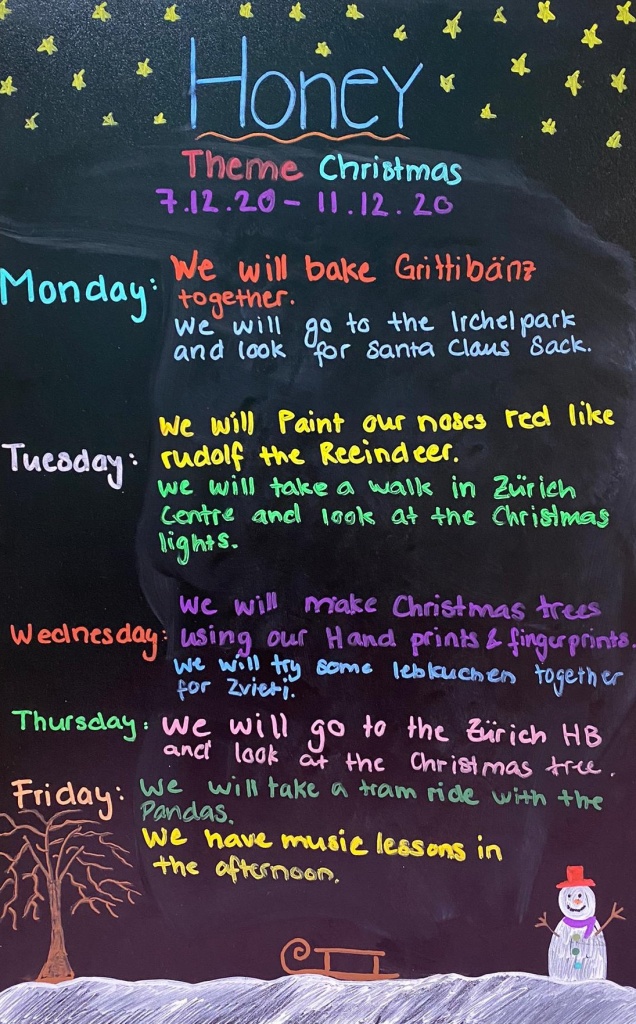 Honey
Theme Christmas
7.12.20 - 11.12.20
Monday: We will bake Grittibänz
together.
We will go to the Irchelpark
and look for Santa Claus Sack.
Tuesday: We will Paint our noses red like
rudolf the Reeindeer.
We will take a walk in Zürich
Centre and look at the Christmas
lights.
We will make Christmas trees
Wednesday: using our Hand prints & fingerprints.
We will try some lebkuchen together
for Zvieti.
Thursday: We will go to the Zürich HB
and look at the Christmas tree.
Friday: We will take a tram ride with the
Pandas.
We have music lessons in
the afternoon.